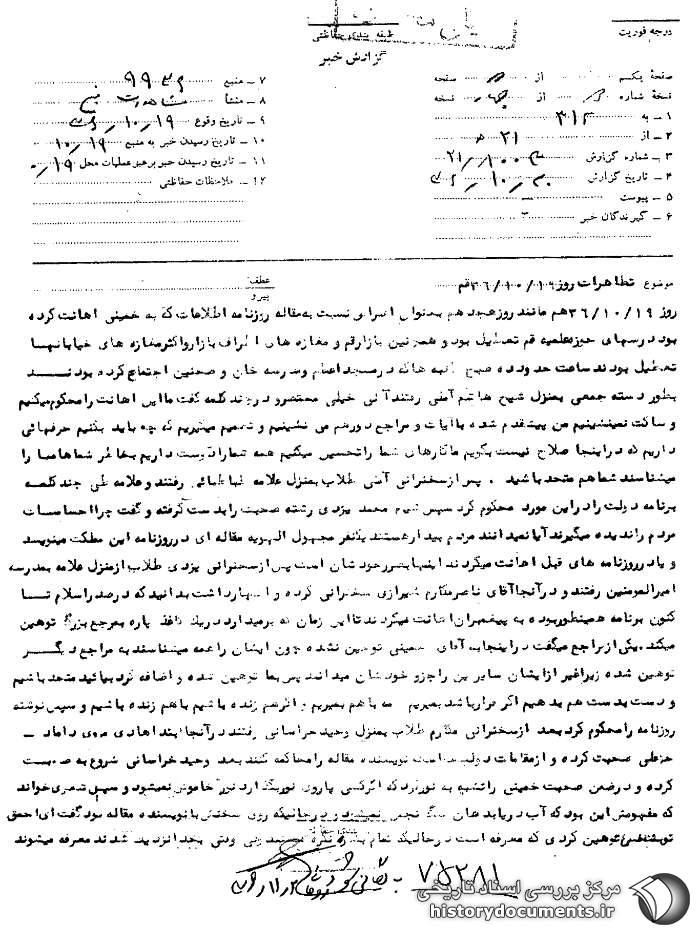 درجه فوریت
طبقه بندی حفاظتی
گزارش خبر
صفحه یکم از صفحه
نسخه شماره از نسخه
۱ - به ۳۱۲
۲ - از ۲۱ ه
۳ - شماره گزارش
۴ - تاریخ گزارش
۵ - پیوست
۶ - گیرندگان خبر
۷ - منبع
۸ - منشأ
۹ - تاریخ وقوع ۱۹/۱۰/
۱۰ - تاریخ رسیدن خبر به منبع ۱۹/۱۰
۱۱ - تاریخ رسیدن خبر برهبر عملیات محل ۱۹/
۱۲ - ملاحظات حفاظتی
موضوع تظاهرات روز ۳۶/۱۰/۱۹ قم
عطف
پیرو
روز ۳۶/۱۰/۱۹ هم مانند روز هجدهم بعنوان اعتراض نسبت به مقاله روزنامه اطلاعات که به خمینی اهانت کرده
بود درسهای حوزه علمیه قم تعطیل بود و همچنین بازار قم و مغازه های اطراف بازار و اکثر مغازه های خیابانها
تعطیل بودند ساعت حدود ده صبح طلبه ها که در مسجد اعظم و مدرسه خان و صحنین اجتماع کرده بودند
بطور دسته جمعی بمنزل شیخ هاشم آملی رفتند آملی خیلی مختصر و در چند کلمه گفت ما این اهانت را محکوم میکنیم
و ساکت نمینشینیم من پیشقدم شده با آیات و مراجع دور هم می نشینیم و تصمیم میگیریم که چه باید بکنیم حرفهائی
داریم که در اینجا صلاح نیست بگویم ما کارهای شما را تحسین میکنیم همه شما را دوست داریم بخاطر شماها ما را
میشناسند شما هم متحد باشید . پس از سخنرانی آملی طلاب بمنزل علامه طباطبائی رفتند و علامه طی چند کلمه
برنامه دولت را در این مورد محکوم کرد سپس شیخ محمد یزدی رشته صحبت را بدست گرفته و گفت چرا احساسات
مردم را ندیده میگیرند آیا نمیدانند مردم بیدار هستند یکنفر مجهول الهویه مقاله ای در روزنامه این مملکت مینویسد
و یا در روزنامه های قبل اهانت میکردند اینها بضرر خودشان است پس از سخنرانی یزدی طلاب از منزل علامه بمدرسه
امیرالمومنین رفتند و در آنجا آقای ناصر مکارم شیرازی سخنرانی کرده و اظهار داشت بدانید که در صدر اسلام تا
کنون برنامه همینطور بوده به پیغمبران اهانت میکردند تا این زمان که برمیدارد در یک کاغذ پاره بمرجع بزرگ توهین
میکند یکی از مراجع میگفت در اینجا به آقای خمینی توهین نشده چون ایشان را همه میشناسند به مراجع دیگر
توهین شده زیرا غیر از ایشان سایرین را جزو خودشان میدانند پس بما توهین شده و اضافه کرد بیائید متحد باشیم
و دست بدست هم بدهیم اگر قرار باشد بمیریم همه با هم بمیریم و اگر هم زنده باشیم با هم زنده باشیم و سپس نوشته
روزنامه را محکوم کرد بعد از سخنرانی مکارم طلاب بمنزل وحید خراسانی رفتند در آنجا ابتدا هادی مروی داماد -
صحبت کرده و از مقامات دولت خواست نویسنده مقاله را محاکمه کنند بعد وحید خراسانی شروع به صحبت
کرده و در ضمن صحبت خمینی را تشبیه به نور کرد که اگر کسی پا روی نور بگذارد نور خاموش نمیشود و سپس شعری خواند
که مفهومش این بود که آب دریا بدهان سگ نجس نمیشود و در حالیکه روی سخنش با نویسنده مقاله بود گفت ای احمق
تو توهین کردی که معرفه است در حالیکه تمام نکره هستند ولی وقتی بخدا نزدیک شدند معرفه میشوند
مرکز بررسی اسناد تاریخی
historydocuments.ir